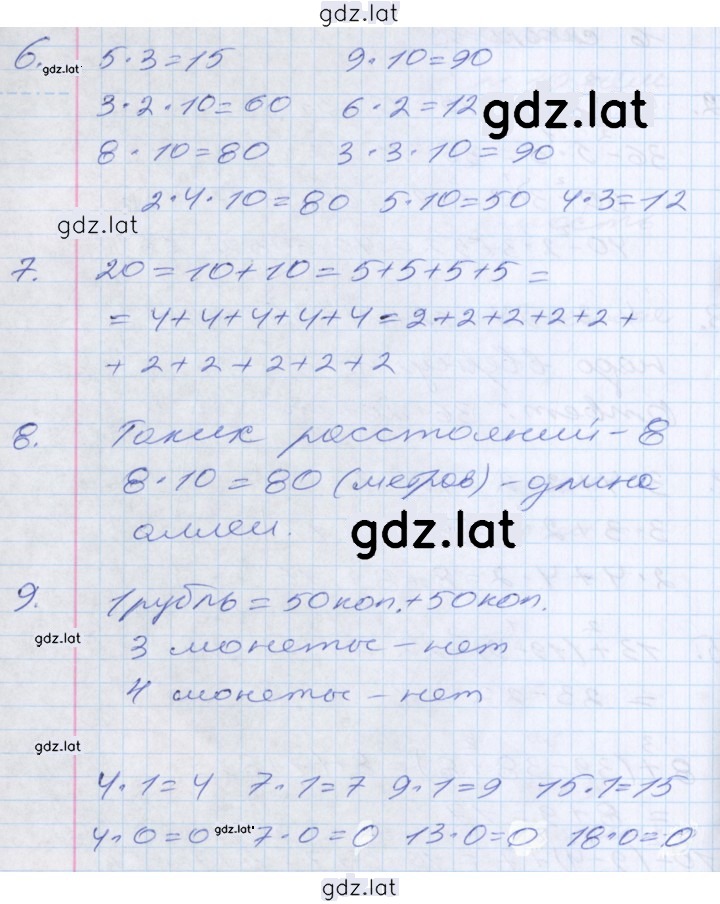 gdz.lat
6. gdz.lat 5·3=15 9·10=90
3·2·10=60 6·2=12 gdz.lat
8·10=80 3·3·10=90
2·4·10=80 5·10=50 4·3=12
gdz.lat
7. 20=10+10=5+5+5+5=
=4+4+4+4+4=2+2+2+2+2+
+2+2+2+2+2
8. Таких расстояний-8
8·10=80 (метров)-длина
аллеи. gdz.lat
9. 1 рубль=50коп.+50коп.
gdz.lat 3 монеты-нет
4 монеты-нет
gdz.lat
4·1=4 7·1=7 9·1=9 15·1=15
4·0=0 gdz.lat 7·0=0 13·0=0 18·0=0
gdz.lat